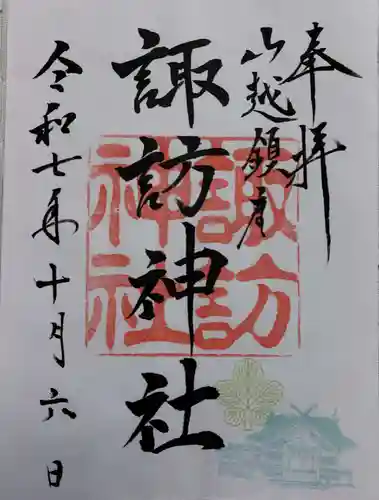 奉拝
山越領産
諏訪神社
諏訪神社
令和七年十月六日